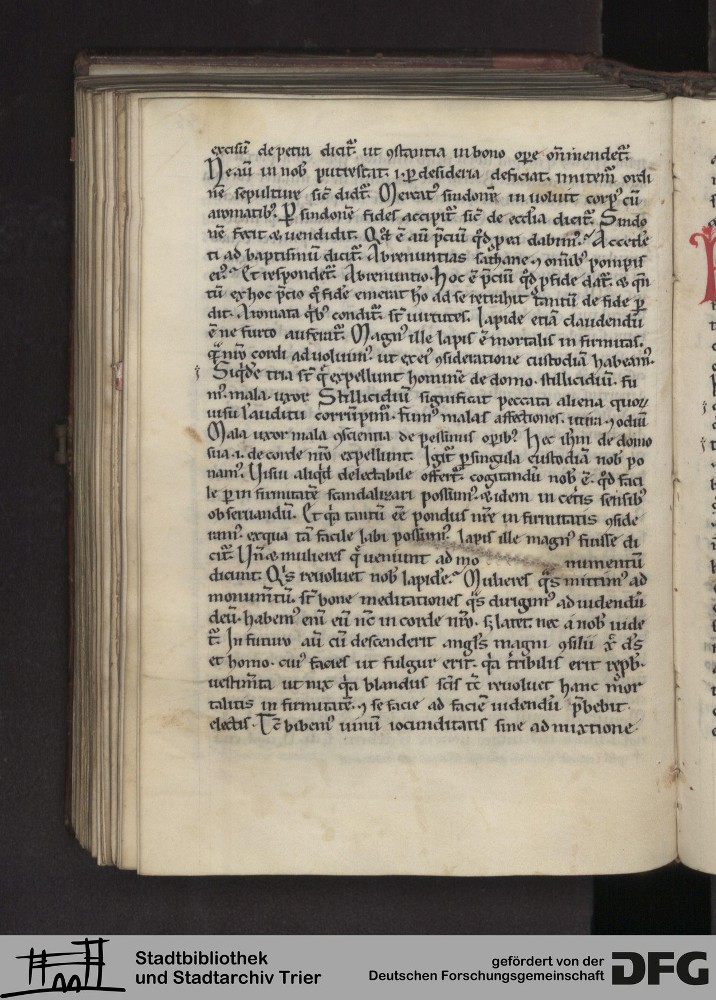 excisũ de petra dicit᷑. ut ꝯstantia in bono oꝑe om̃endet᷑.
Ne aũ in nob̾ putrescat. .i. ꝑ desideria deficiat. mitem᷑ ordi
nẽ sepulture sic̃ dict᷑. Mercat᷒ sindonẽ inuoluit corp᷒ cũ
aromatib᷒. Ꝑ sindonẽ fides accipit᷑ sic̃ de eccl̃ia dicit᷑. Sindo
nẽ fecit ⁊ uendidit. Qđ ẽ aũ p̃ciũ qđ ꝓ ea dabim᷒? Accede
ti ad baptismũ dicit᷑. Abrenuntias sathane ⁊ om̃ib᷒ pompis
ei᷒? Et respondet᷑. Abrenuntio. Hoc ẽ p̃ciũ qđ ꝓ fide dat᷑. ⁊ qñ
tũ ex hoc p̃cio q̃ fidẽ emerat hõ ad se retrahit tantũ de fide ꝑ
dit. Aromata q̾b᷒ condit᷑. st̃ uirtutes. Lapide etiã claudendũ
ẽ ne furto auferat᷑. Magn᷒ ille lapis ẽ mortalis infirmitas.
q̃ nr̃o cordi aduoluim᷒. ut ex ei᷒ ꝯsideratione custodiã habeam᷒.
Siq̾de tria st̃ q̃ expellunt hominẽ de domo. stillicidiũ. fu
m᷒. mala uxor. Stillicidiũ significat peccata aliena quoꝝ
uisu ł auditu corrũpim᷑. fum᷒ malas affectiones. ut ira. ⁊ odiũ
Mala uxor mala ꝯscientia de pessimis opib᷒. Hec ih̃m de domo
sua .i. de corde nr̃o expellunt. Igit᷑ ꝑ singula custodiã nob̾ po
nam᷒. Uisui aliqđ delectabile offert᷑. cogitandũ nob̾ ẽ. qđ faci
le ꝑ infirmitatẽ scandalizari possum᷒. ⁊ idem in cet̾is sensib᷒
obseruandũ. Et q̾a tantũ eẽ pondus nr̃e infirmitatis ꝯside
ram᷒. ex qua tã facile labi possum᷒. lapis ille magn᷒ fuisse di
cit᷑. Uñ ⁊ mulieres q̃ ueniunt ad mo numentũ
dicunt. Q̾s reuoluet nob̾ lapidẽ? Mulieres q̃s mittim᷒ ad
monum̃tũ. st̃ bone meditationes q̃s dirigim᷒ ad uidendũ
deũ. habem᷒ enĩ eũ nc̃ in corde nr̃o. s; latet. nec a nob̾ uide
t᷑. In futuro aũ cũ descenderit angl̃s magni ꝯsilii xp̃c d̃s
et homo. cui᷒ facies ut fulgur erit. q̾a t̾ribilis erit rep̃b̾.
uestim̃ta ut nix q̾a blandus sc̃is tc̃ reuoluet hanc mor
talitatis infirmitatẽ. ⁊ se facie ad faciẽ uidendũ p̃bebit
electis. Tc̃ bibem᷒ uinũ iocunditatis sine admixtione
Stadtbibliothek
und Stadtarchiv Trier
gefördert von der
Deutschen Forschungsgemeinschaft
DFG